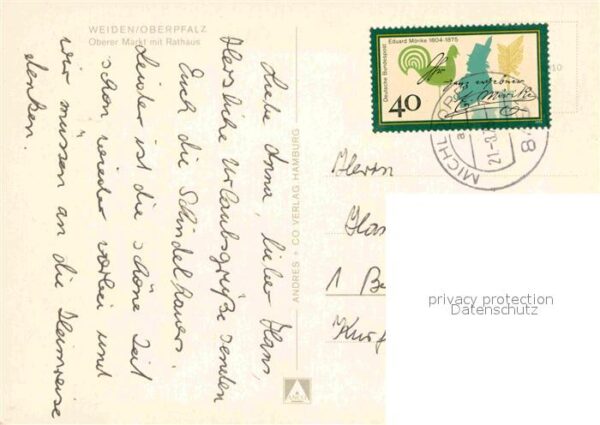 WEIDEN/OBERPFALZ
Oberer Markt mit Rathaus
Liebe Anna, lieber Hans,
Herzliche Urlaubsgrüße senden
Euch die Schindelhauers.
Leider ist die schöne Zeit
schon wieder vorbei und
wir müssen an die Heimreise
denken.
ANDRES + CO VERLAG HAMBURG
Eduard Mörike 1804-1875
Deutsche Bundespost
40
MICHL
21.-8.
Herrn
Hans
1 Be
Kurf
privacy protection
Datenschutz